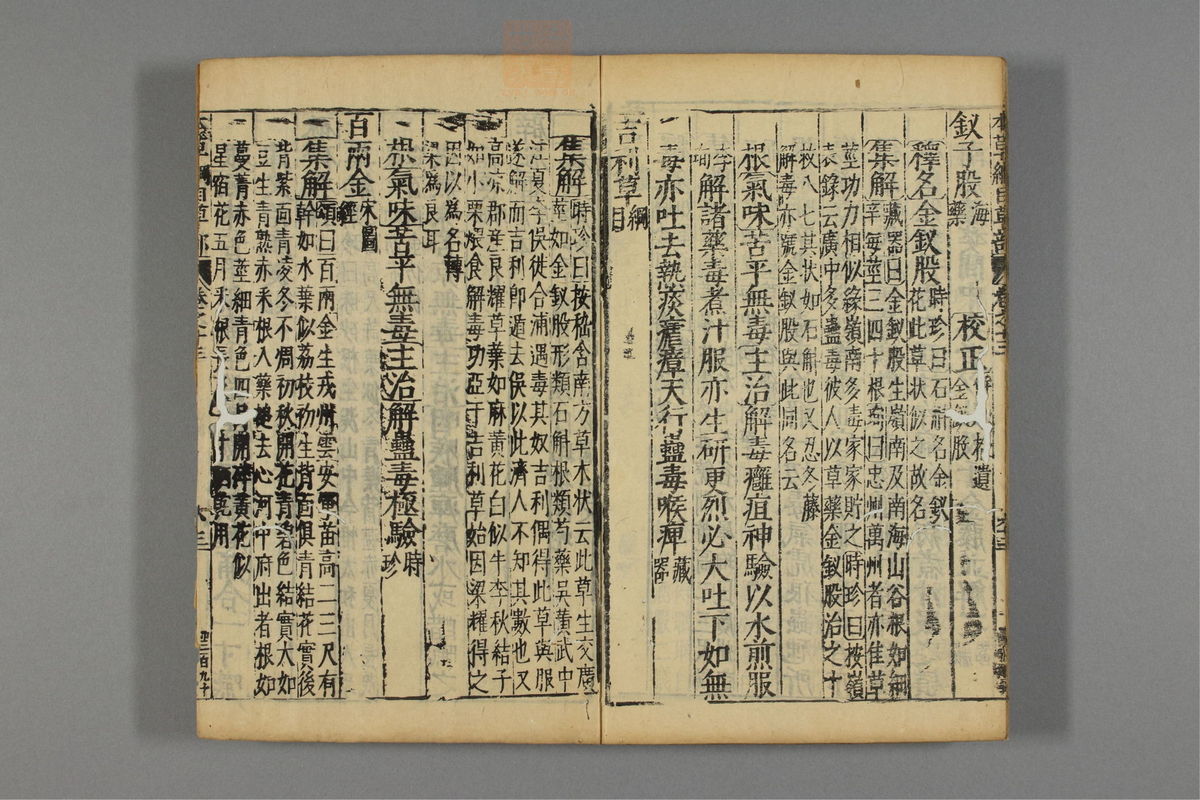 釵子股 海藥 校正 併入拾遺金釵股
釋名金釵股 時珍曰石斛名金釵
花此草狀似之故名
集解 藏器曰金釵股生嶺南及南海山谷根如細
辛每莖三四十根珣曰忠州萬州者亦佳草
莖功力相似緣嶺南多毒家家貯之時珍曰按嶺
表錄云廣中多蠱毒彼人以草藥金釵股治之十
救八九其狀如石斛也又忍冬藤
解毒亦號金釵股與此同名云
根氣味苦平無毒主治解毒癰疽神驗以水煎服
李珣 解諸藥毒煮汁服亦生研更烈必大吐下如無
毒亦吐去熱痰瘧瘴天行蠱毒喉痺 藏器
吉利草 綱目
集解 時珍曰按嵇含南方草木狀云此草生交廣
莖如金釵股形類石斛根類芍藥吳黃武中
江夏李俁徙合浦遇毒其奴吉利偶得此草與服
遂解而吉利即遁去俁以此濟人不知其數也又
高涼郡產良耀草葉如麻黃花白似牛李秋結子
如小栗煨食解毒功亞于吉利草始因梁耀得之
因以為名轉
梁為良耳
根氣味苦平無毒主治解蠱毒極驗 時珍
百兩金 宋圖經
集解 頌曰百兩金生戎州雲安軍苗高二三尺有
幹如水葉似荔枝初生背面俱青結花實後
背紫面青凌冬不凋初秋開花青碧色結實大如
豆生青熟赤采根入藥槌去心河中府出者根如
蔓菁赤色莖細青色四月開碎黃花似
星宿花五月采根長